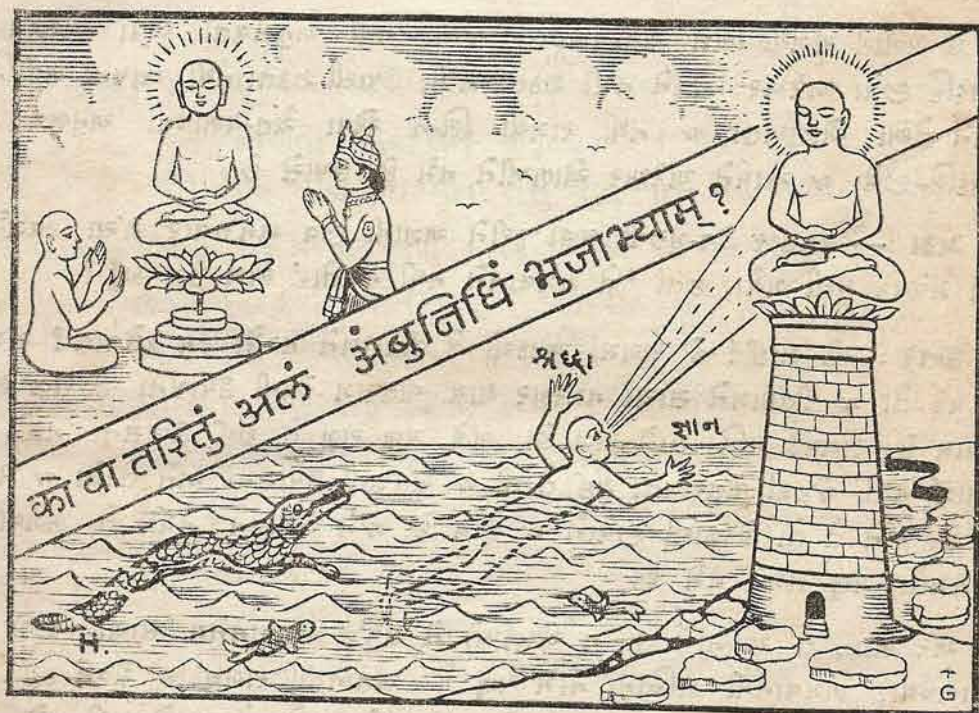 को वा तरितुं अलं अंबुनिधिं भुजाभ्याम्?
श्रद्धा
ज्ञान
H.
G